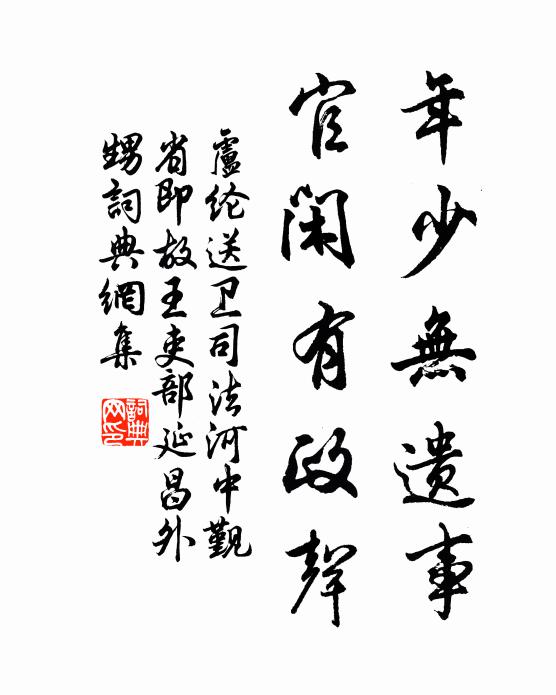 年少無遺事
官閑有政聲
盧纶送卫司法河中觀
省即故王吏部延昌外
甥詞典網集
詞典
网印